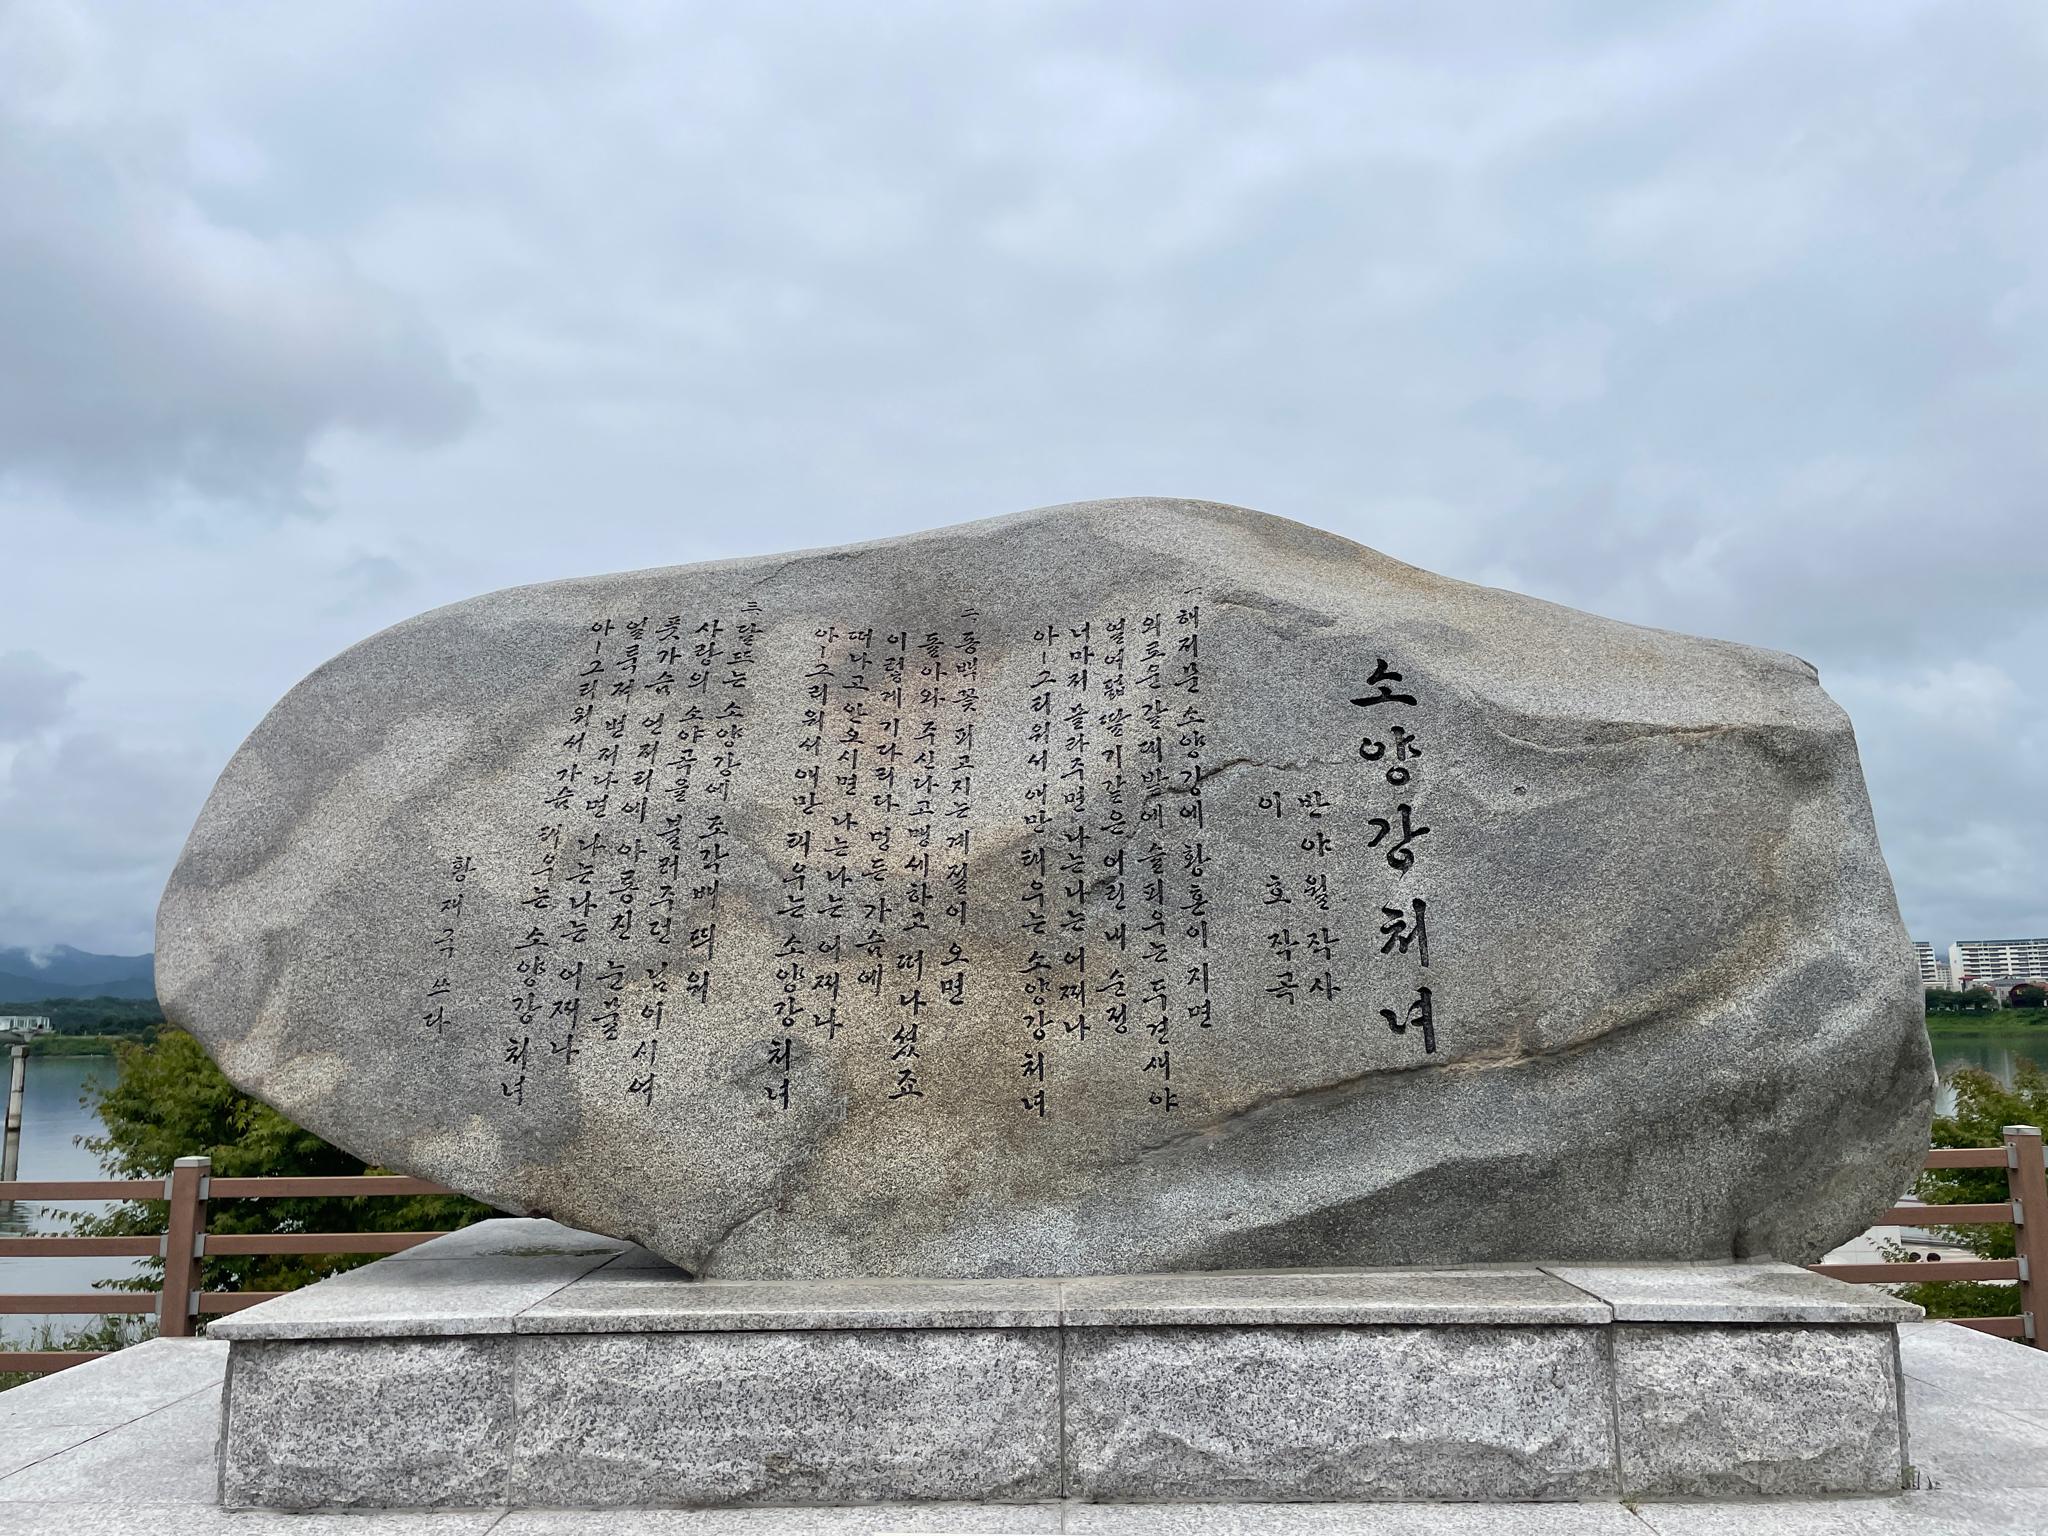 소양강처녀
반야월 작사
이호 작곡
一 해저문 소양강에 황혼이 지면
외로운 갈대밭에 슬피우는 두견새야
열여덟 딸기같은 어린내 순정
너마저 몰라주면 나는나는 어쩌나
아ㅡ그리워서 애만 태우는 소양강 처녀
二 동백꽃 피고지는 계절이 오면
돌아와 주신다고 맹세하고 떠나셨죠
이렇게 기다리다 멍든 가슴에
떠나고 안오시면 나는나는 어쩌나
아ㅡ그리워서 애만 태우는 소양강 처녀
三 달뜨는 소양강에 조각배 띄워
사랑의 소야곡을 불러주던 님이시여
풋가슴 언저리에 아롱진 눈물
얼룩져 번져나면 나는나는 어쩌나
아ㅡ그리워서 가슴 태우는 소양강 처녀
황재국 쓰다